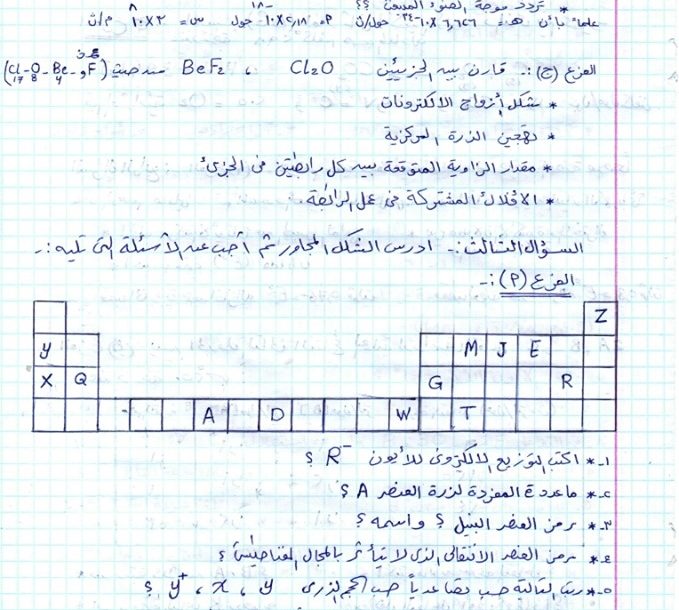 * تردد موجة الضوء المنبعث ؟؟
علماً بأن هـ = ٦,٦٢٦ × ١٠-٣٤ جول/ث ، P = ٢,١٨ × ١٠-١٨ جول س = ٢ × ١٠ ٨ م/ث
الفرع (ج) :- قارن بين الجزيئين Cl2O ، BeF2 من حيث (9F - 4Be - 8O - 17Cl)
* شكل أزواج الالكترونات
* تهجين الذرة المركزية
* مقدار الزاوية المتوقعة بين كل رابطتين في الجزيء
* الافلاك المشتركة في عمل الرابطة.
السؤال الثالث :- ادرس الشكل المجاور ثم أجب عن الأسئلة التي تليه :-
الفرع (P) :-
Z
y M J E
X Q G R
A D W T
١-* اكتب التوزيع الالكتروني للأيون R- ؟
٢-* ما عدد المفردة لذرة العنصر A ؟
٣-* رمز العنصر النبيل ؟ واسمه ؟
٤-* رمز العنصر الانتقالي الذي لا يتأثر بالمجال المغناطيسي ؟
٥-* رتب التالية حسب تصاعدياً حسب الحجم الذري y ، x ، y+ ؟